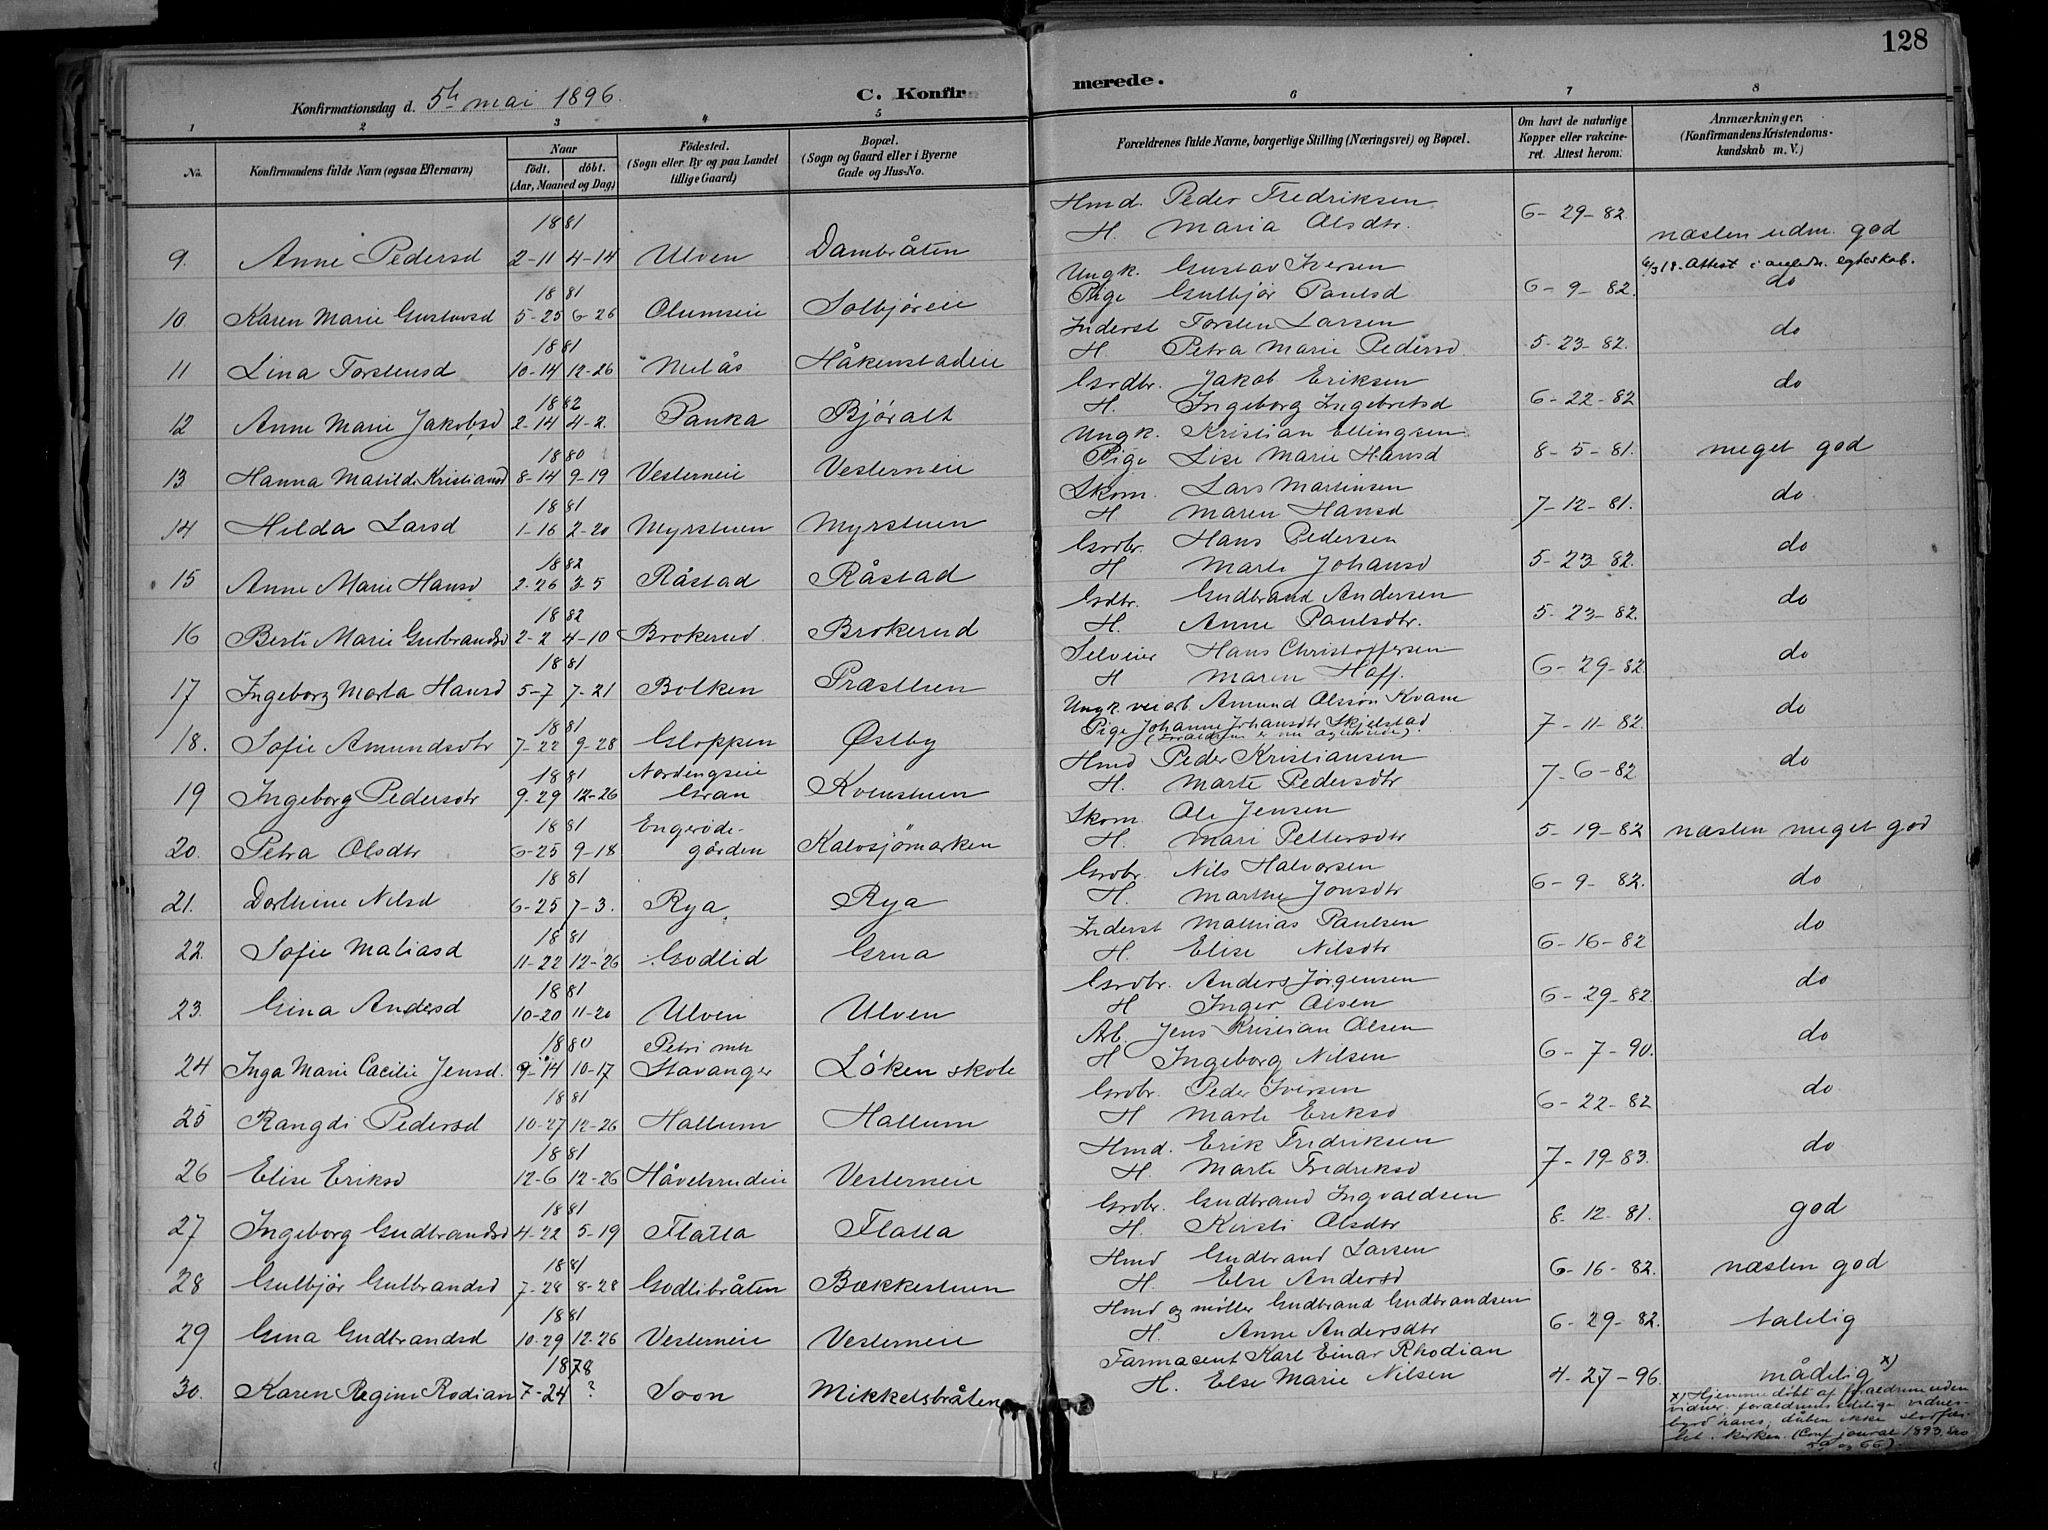 128
Konfirmationsdag d. 5te mai 1896.
C. Konfirmerede.
1 2 3 4 5 6 7 8
No. Konfirmandens fulde Navn (ogsaa Efternavn)
Naar
født. døbt.
(Aar, Maaned og Dag)
Fødested.
(Sogn eller By og paa Landet
tillige Gaard)
Bopæl.
(Sogn og Gaard eller i Byerne
Gade og Hus-No.
Forældrenes fulde Navne, borgerlige Stilling (Næringsvei) og Bopæl.
Om havt de naturlige
Kopper eller vakcine-
ret. Attest herom:
Anmærkninger.
(Konfirmandens Kristendoms-
kundskab m. V.)
1881
9. Anne Pedersd 2-11 4-14 Ulven Dambråten
Hmd. Peder Fredriksen
H. Maria Olsdtr. 6-29-82. næsten udm. god
Attest i anledn. egteskab.
1881
10 Karen Marie Gustavsd 5-25 6-26 Olumseie Solbjöreie
Ungk. Gustav Iversen
Pige Gulbjör Paulsd 6-9-82. do
1881
11 Lina Torstensd 10-14 12-26 Melås Håkenstadeie
Inderst Torsten Larsen
H. Petra Marie Pedersd. 5-23-82. do
1882
12 Anne Marie Jakobsd 2-14 4-2. Panka Björalt
Grdbr. Jakob Eriksen
H. Ingeborg Ingebretsd 6-22-82 do
1880
13 Hanna Matilde Kristiansd 8-14 9-19 Vesterneie Vesterneie
Ungk. Kristian Ellingsen
Pige Lise Marie Hansd 8-5-81. meget god
1881
14 Hilda Larsd 1-16 2-20 Myrstuen Myrstuen
Skom. Lars Martinsen
H Maren Hansd 7-12-81. do
1882
15 Anne Marie Hansd 2-26 3-5 Råstad Råstad
Grdbr. Hans Pedersen
H Marte Johansd 5-23-82. do
1882
16 Berte Marie Gudbrandsd 2-2 4-10 Brokerud. Brokerud
Grdbr. Gudbrand Andersen
H. Anne Paulsdtr. 5-23-82. do
1881
17 Ingeborg Marta Hansd 5-7 7-21 Bolken Præstuen
Selveier Hans Christoffersen
H Maren Haff. 6-29-82. do
1881
18. Sofie Amundsdtr 7-22 9-28 Gloppen Østby
Ungk. veiarb. Amund Olssön Kvam
Pige Johanne Johansdtr Skjelstad
(Forældrene er nu ægteviede). 7-11-82. do
1881
19 Ingeborg Pedersdtr 9-29 12-26 Nordengseie
Gran Kvenstuen
Hmd Peder Kristiansen
H. Marte Pedersdtr 7-6-82 do
1881
20. Petra Olsdtr 6-25 9-18 Engeröde-
gården Kalvsjömarken
Skom. Ole Jensen
H. Mari Pettersdtr 5-19-82 næsten meget god
1881
21. Dorthine Nilsd 6-25 7-3. Rya Rya
Grdbr. Nils Halvorsen
H. Marthe Jonsdtr 6-9-82. do
1881
22. Sofie Matiasd 11-22 12-26 Godlid Grua
Inderst Mathias Paulsen
H. Elise Nilsdtr 6-16-82 do
1881
23. Gina Andersd 10-20 11-20 Ulven Ulven
Grdbr. Anders Jørgensen
H Inger Olsen 6-29-82. do
1880
24 Inga Marie Cæcilie Jensd. 9-14 10-17 Petri mh
Stavanger Löken skole
Arb. Jens Kristian Olsen
H Ingeborg Nilsen 6-7-90. do
1881
25 Rangdi Pedersd 10-27 12-26 Hallum Hallum
Grdbr. Peder Iversen
H Marte Eriksd 6-22-82 do
1881
26 Elise Eriksd 12-6 12-26 Håvelsrudeie Vesterneie
Hmd. Erik Fredriksen
H. Marte Fredriksd 7-19-83. do
1881
27 Ingeborg Gudbrandsd 4-22 5-19 Flatla Flatla
Grdbr. Gudbrand Ingvaldsen
H. Kirsti Olsdtr 8-12-81. god
1881
28 Gulbjör Gulbrandsd 7-28 8-28 Godlibråten Bækkestuen
Hmd Gudbrand Larsen
H. Else Andersd 6-16-82. næsten god
1881
29 Gina Gudbrandsd 10-29 12-26 Vesterneie Vesterneie
Hmd og møller Gudbrand Gudbrandsen
H. Anne Andersdtr 6-29-82. talelig
1878
30. Karen Regine Rodian 7-24 ? Soon Mikkelsbråten
Farmaceut Karl Einar Rhodian
H. Else Marie Nilsen 4-27-96. mådelig x)
x) Hjemme døbt af forældrene uden
vidner. forældrenes edelige vidnes-
byrd haves; dåben ikke stadfæs-
tet i kirken. (Conf. journal 1893
og 66).